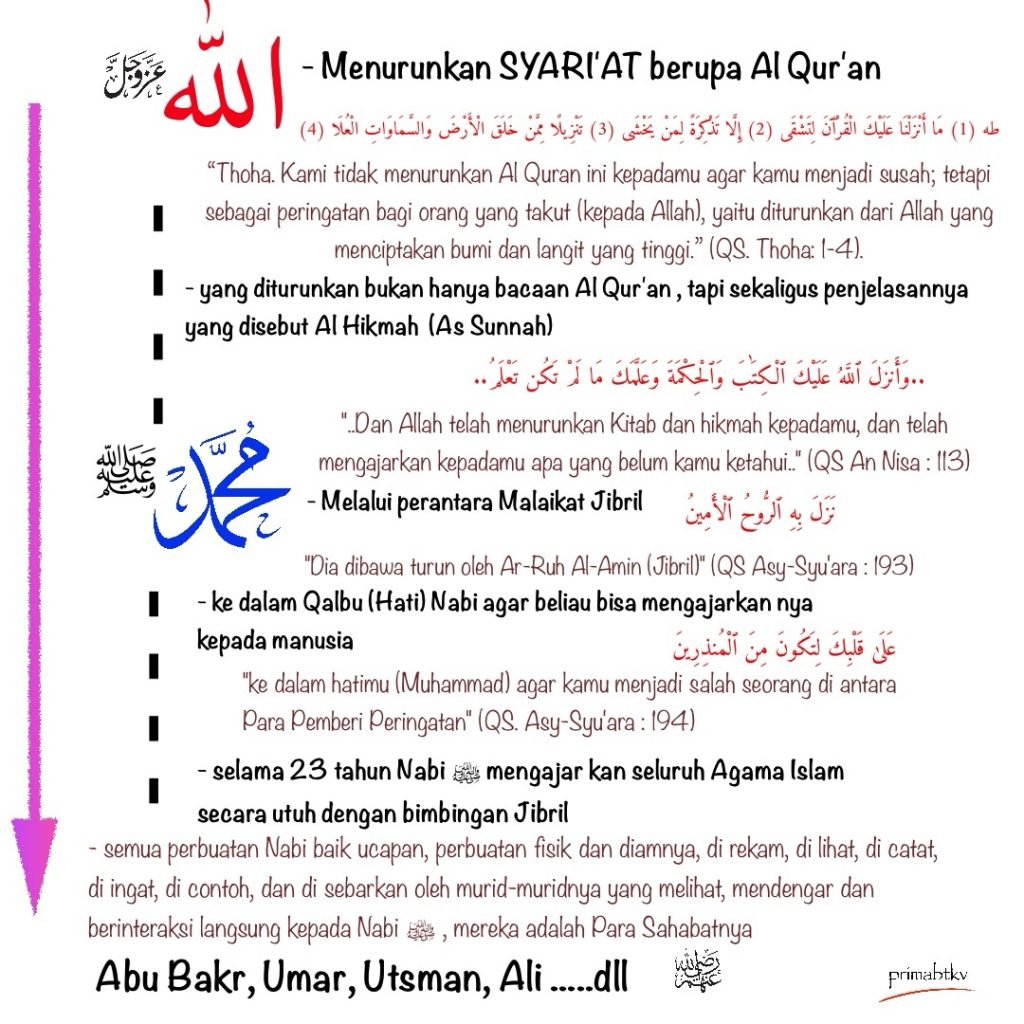 الله عَزَّوَجَلَّ - Menurunkan SYARI'AT berupa Al Qur'an
طه (1) مَا أَنْزَلْنَا عَلَيْكَ الْقُرْآنَ لِتَشْقَى (2) إِلَّا تَذْكِرَةً لِمَنْ يَخْشَى (3) تَنْزِيلًا مِمَّنْ خَلَقَ الْأَرْضَ وَالسَّمَاوَاتِ الْعُلَا (4)
“Thoha. Kami tidak menurunkan Al Quran ini kepadamu agar kamu menjadi susah; tetapi
sebagai peringatan bagi orang yang takut (kepada Allah), yaitu diturunkan dari Allah yang
menciptakan bumi dan langit yang tinggi.” (QS. Thoha: 1-4).
- yang diturunkan bukan hanya bacaan Al Qur'an , tapi sekaligus penjelasannya
yang disebut Al Hikmah (As Sunnah)
..وَأَنزَلَ ٱللَّهُ عَلَيْكَ ٱلْكِتَٰبَ وَٱلْحِكْمَةَ وَعَلَّمَكَ مَا لَمْ تَكُن تَعْلَمُ..
"..Dan Allah telah menurunkan Kitab dan hikmah kepadamu, dan telah
mengajarkan kepadamu apa yang belum kamu ketahui.." (QS An Nisa : 113)
محمد صلى الله عليه وسلم
- Melalui perantara Malaikat Jibril نَزَلَ بِهِ ٱلرُّوحُ ٱلْأَمِينُ
"Dia dibawa turun oleh Ar-Ruh Al-Amin (Jibril)" (QS Asy-Syu'ara : 193)
- ke dalam Qalbu (Hati) Nabi agar beliau bisa mengajarkan nya
kepada manusia عَلَىٰ قَلْبِكَ لِتَكُونَ مِنَ ٱلْمُنذِرِينَ
"ke dalam hatimu (Muhammad) agar kamu menjadi salah seorang di antara
Para Pemberi Peringatan" (QS. Asy-Syu'ara : 194)
- selama 23 tahun Nabi ﷺ mengajar kan seluruh Agama Islam
secara utuh dengan bimbingan Jibril
- semua perbuatan Nabi baik ucapan, perbuatan fisik dan diamnya, di rekam, di lihat, di catat,
di ingat, di contoh, dan di sebarkan oleh murid-muridnya yang melihat, mendengar dan
berinteraksi langsung kepada Nabi ﷺ , mereka adalah Para Sahabatnya
Abu Bakr, Umar, Utsman, Ali .....dll رضي الله عنهم
primabtkv